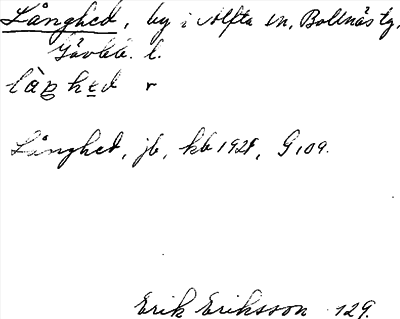 Långhed, by i Alfta sn, Bollnäs tg.
Gävleb. l.
Långhed, jb, kb 1921, G 109.
Erik Eriksson 129.